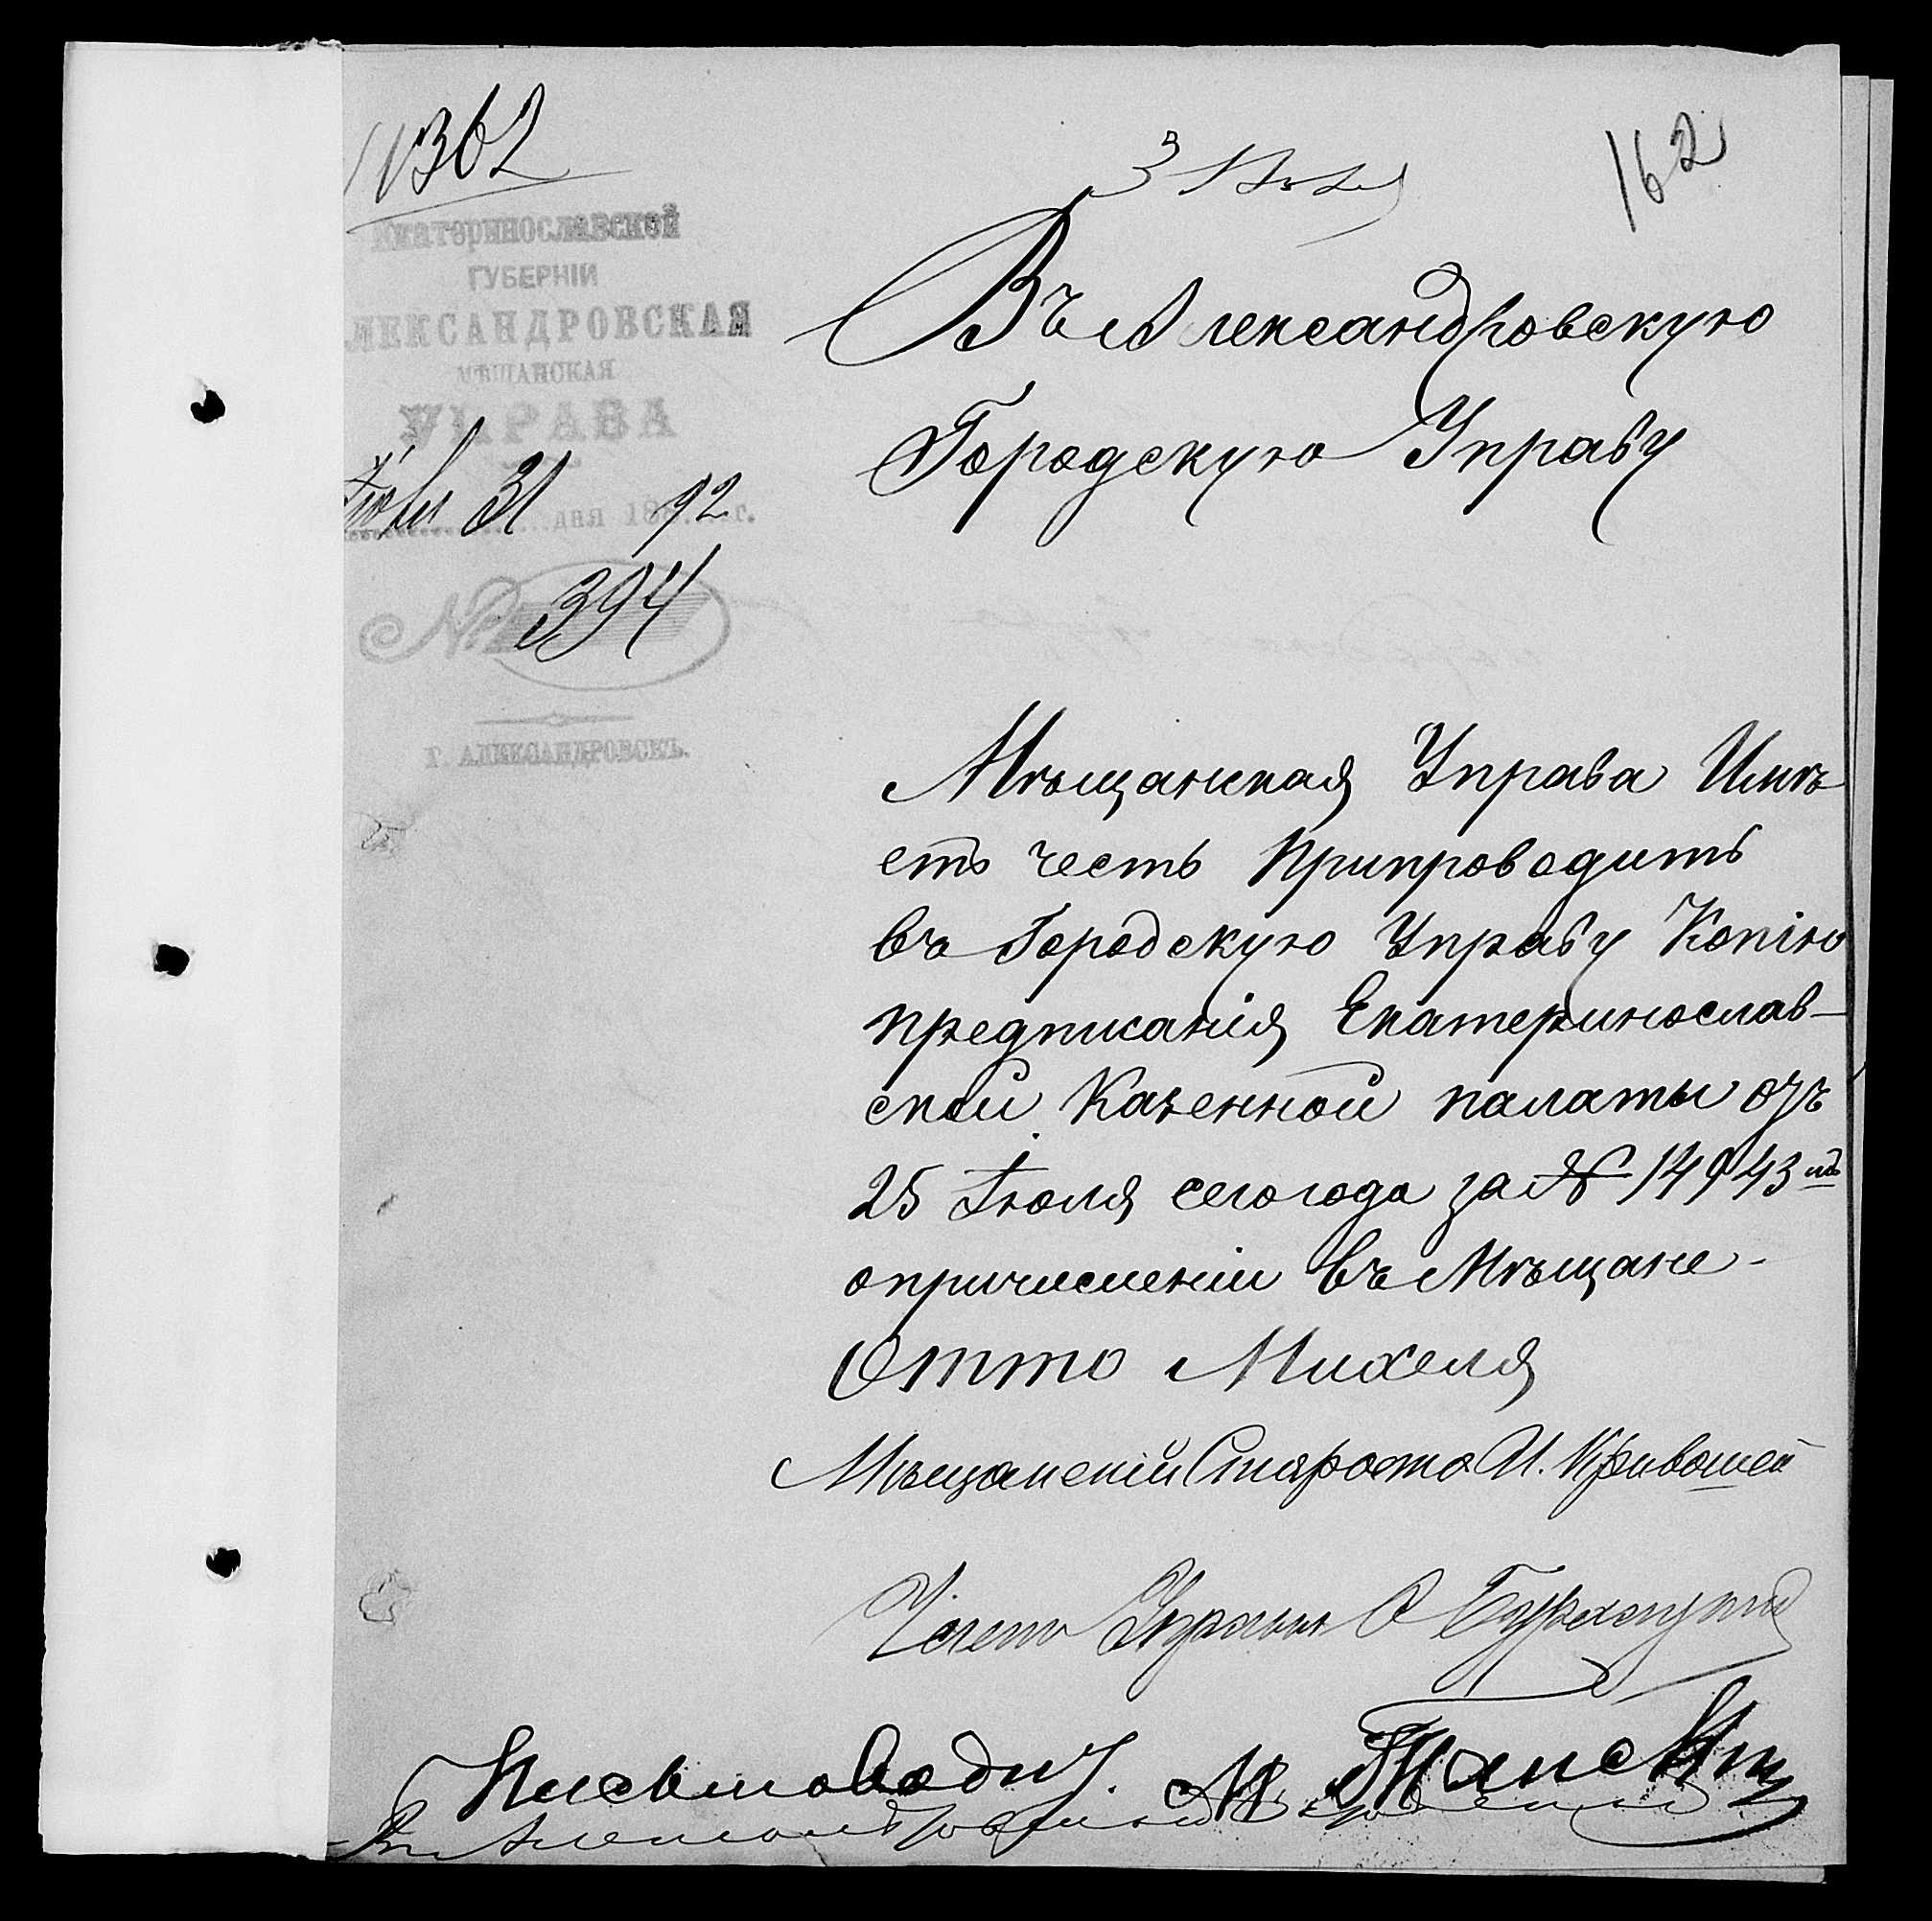 1362
162
Екатеринославской
ГУБЕРНІИ
АЛЕКСАНДРОВСКАЯ
МѢЩАНСКАЯ
УПРАВА
Іюля 31 дня 1892 г.
№ 394
Г. АЛЕКСАНДРОВСКЪ.
Въ Александровскую
Городскую Управу
Мѣщанская Управа Имѣ
етъ честь Припроводить
въ Городскую Управу Копію
предписанія Екатеринослав-
ской Казенной палаты отъ
25 Іюля сего года за № 14943мъ
о причисленіи въ Мѣщане-
Отто Михеля
Мѣщанскій Староста И. Кривошей
Членъ Управы
Письмовод.